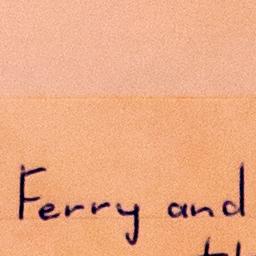 Ferry and